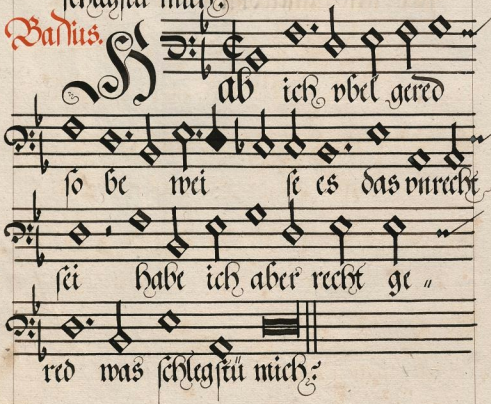 schlegstu mich?
Bassus.
Hab ich vbel gered
so be wei se es das vnrecht
sei habe ich aber recht ge„
red was schlegstu mich?